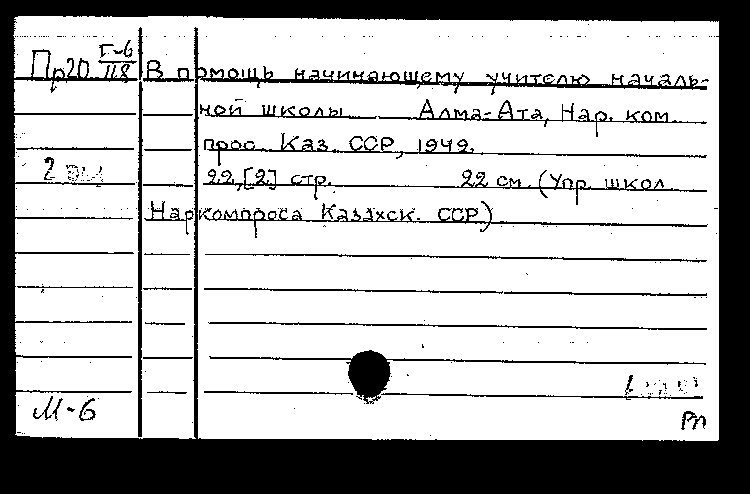 Пр20 I-6/118 В помощь начинающему учителю началь-
ной школы. Алма-Ата, Нар. ком.
прос. Каз. ССР, 1942.
2 эк
22,[2] стр. 22 см. (Упр. школ
Наркомпроса Казахск. ССР)
М-6
Рп